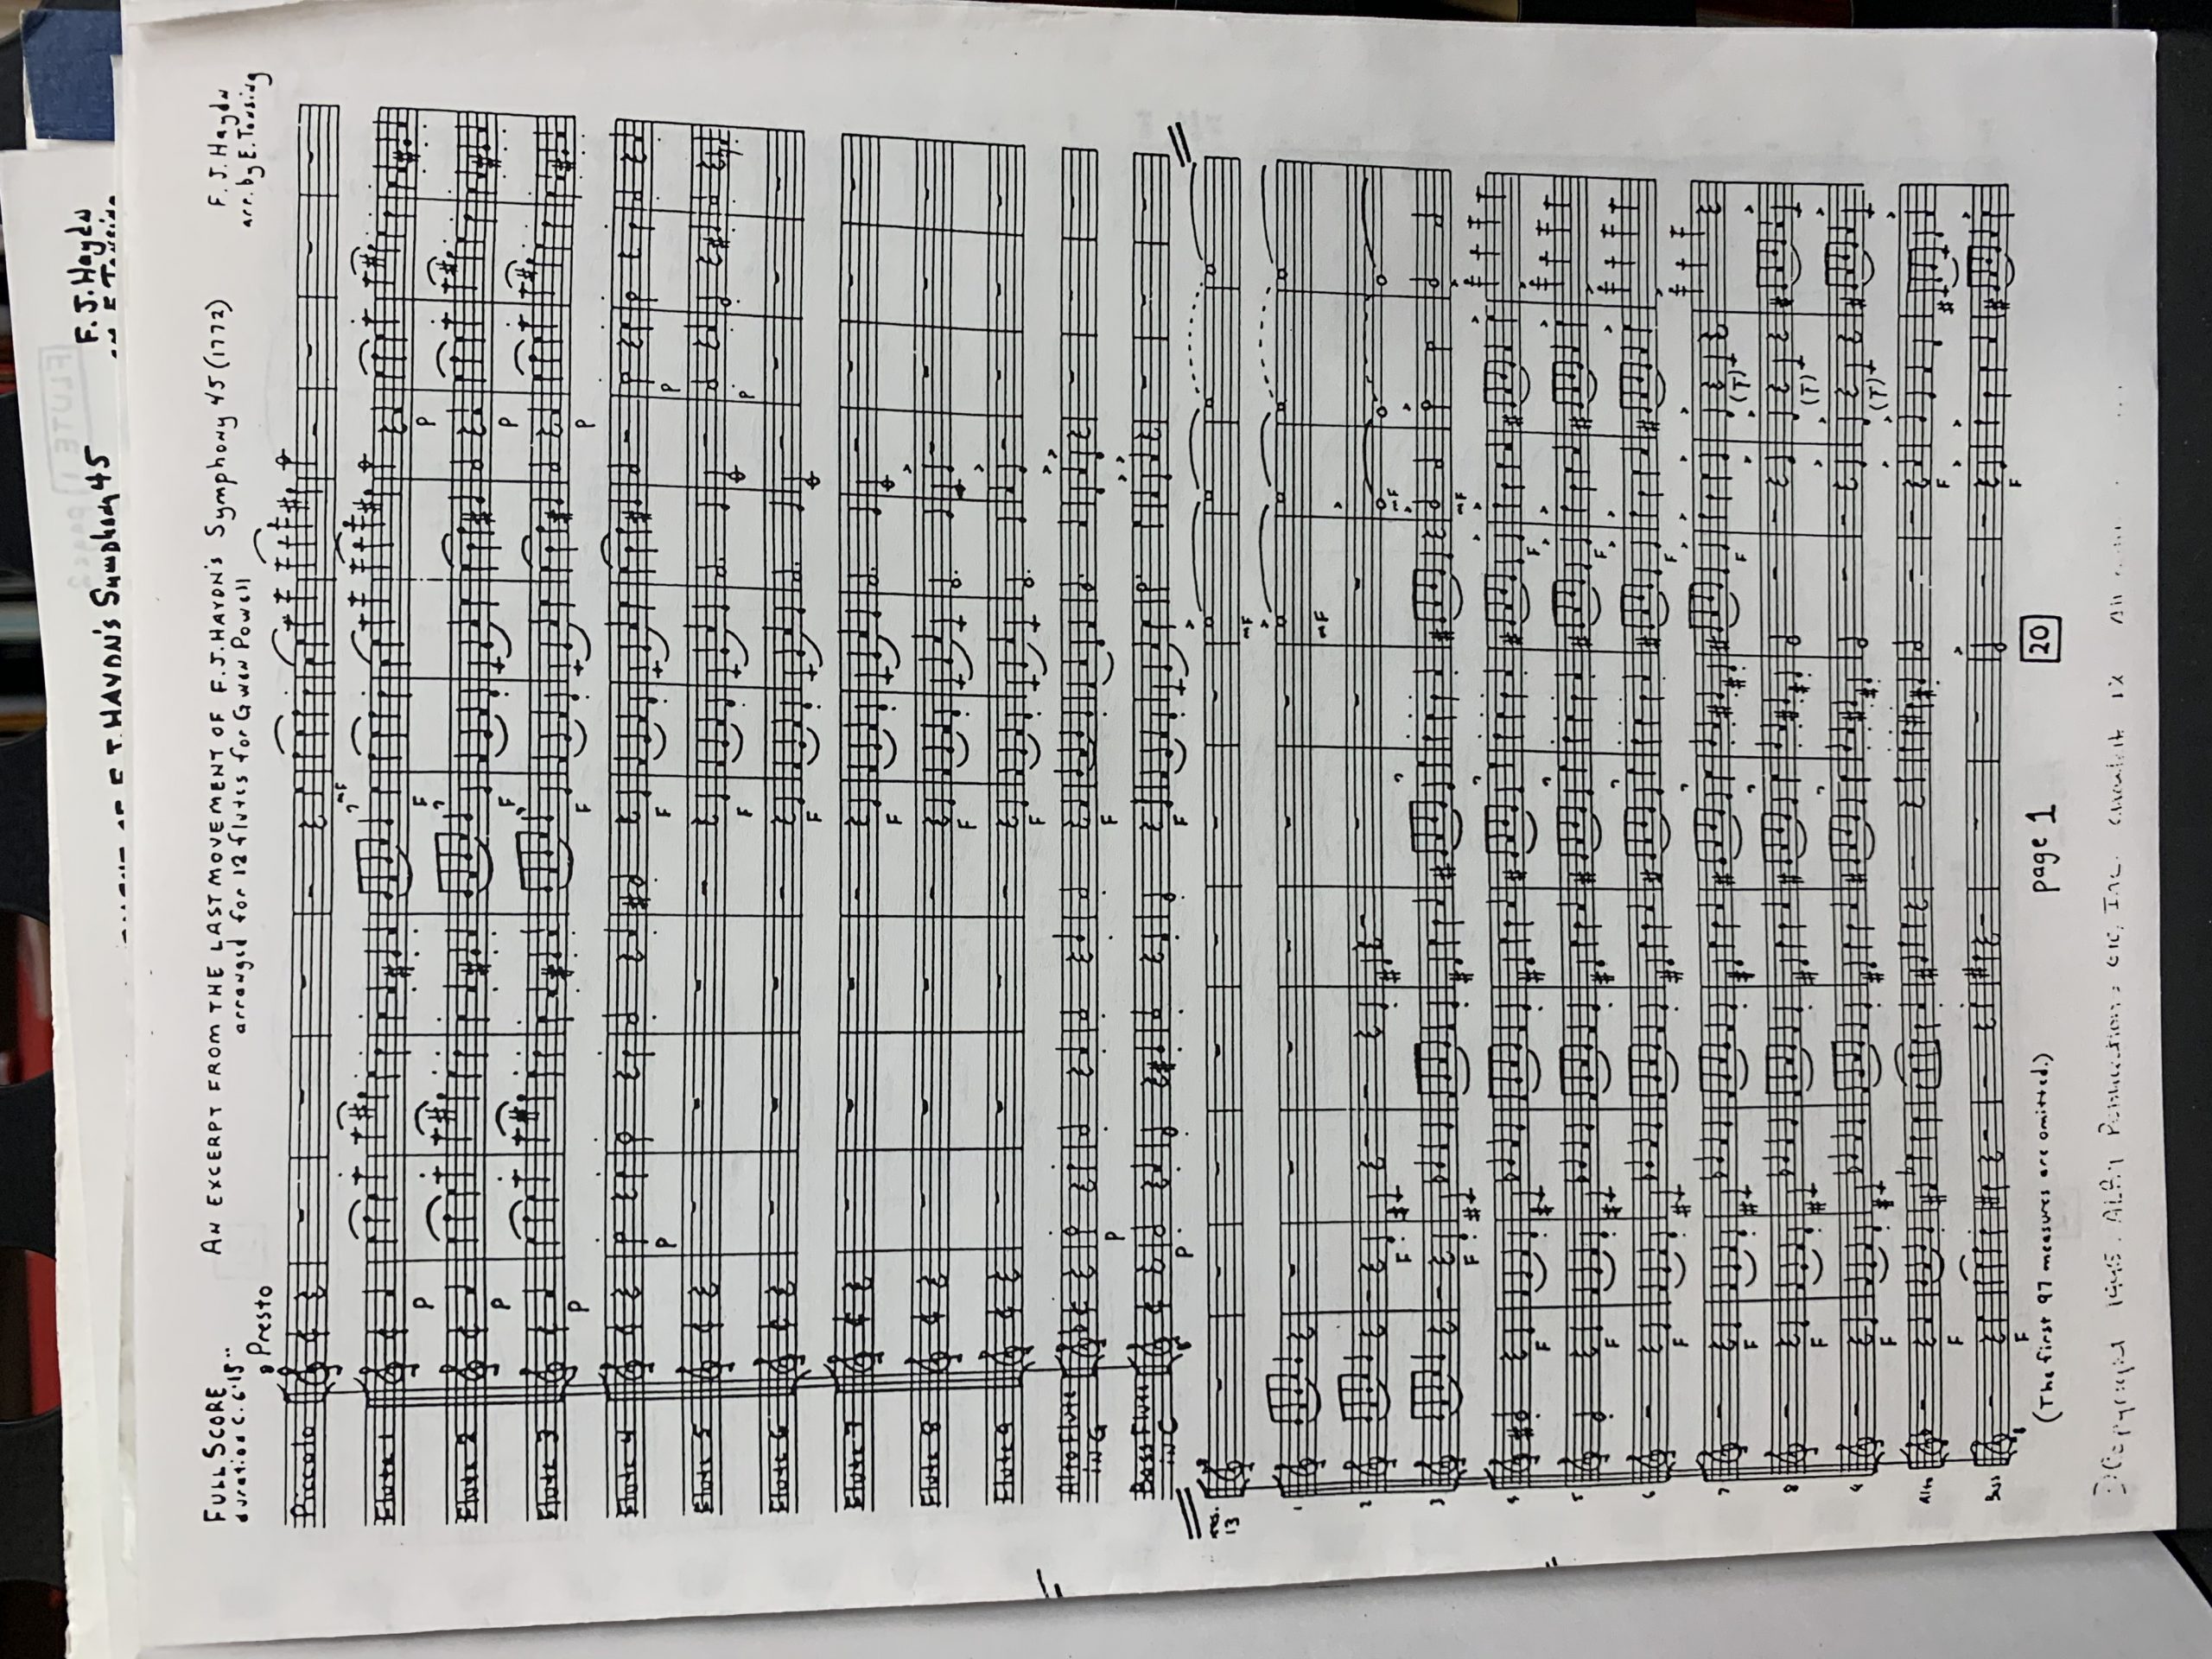 FULL SCORE
duration c. 6'15"
AN EXCERPT FROM THE LAST MOVEMENT OF F.J. HAYDN'S Symphony 45 (1772)
arranged for 12 flutes for Gwen Powell
F.J. Haydn
arr. by E. Tonsing
Presto
Piccolo
Flute 1
Flute 2
Flute 3
Flute 4
Flute 5
Flute 6
Flute 7
Flute 8
Flute 9
Alto Flute
in G
Bass Flute
in C
P
P
P
P
P
P
mF
F
F
F
F
F
F
F
F
F
F
F
P
P
P
P
P
mes.
13
1
2
3
4
5
6
7
8
9
Alto
Bass
F
F
F
F
F
F
F
F
F
F
mF
mF
F
F
F
F
mF
mF
F
F
(T)
(T)
(T)
(The first 97 measures are omitted.)
page 1
20
F.J. HAYDN'S Symphony 45
F.J. Haydn
FLUTE 1